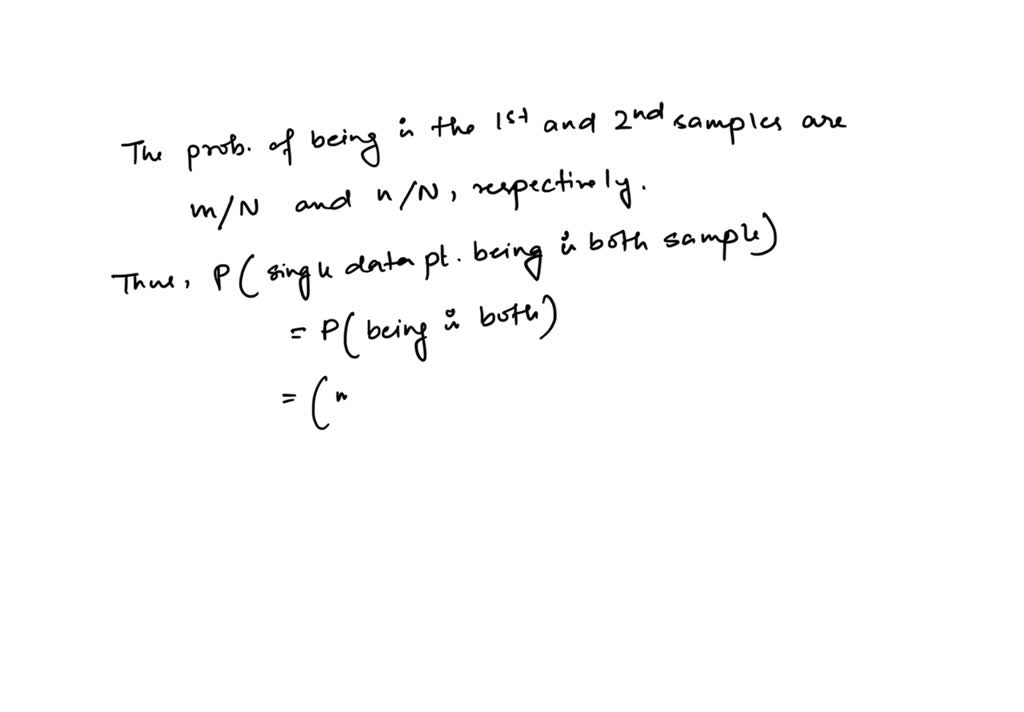 The prob. of being in the 1st and 2nd samples are
m/N and n/N, respectively.
Thus, P(single data pt. being in both sample)
= P(being in both)
= (m